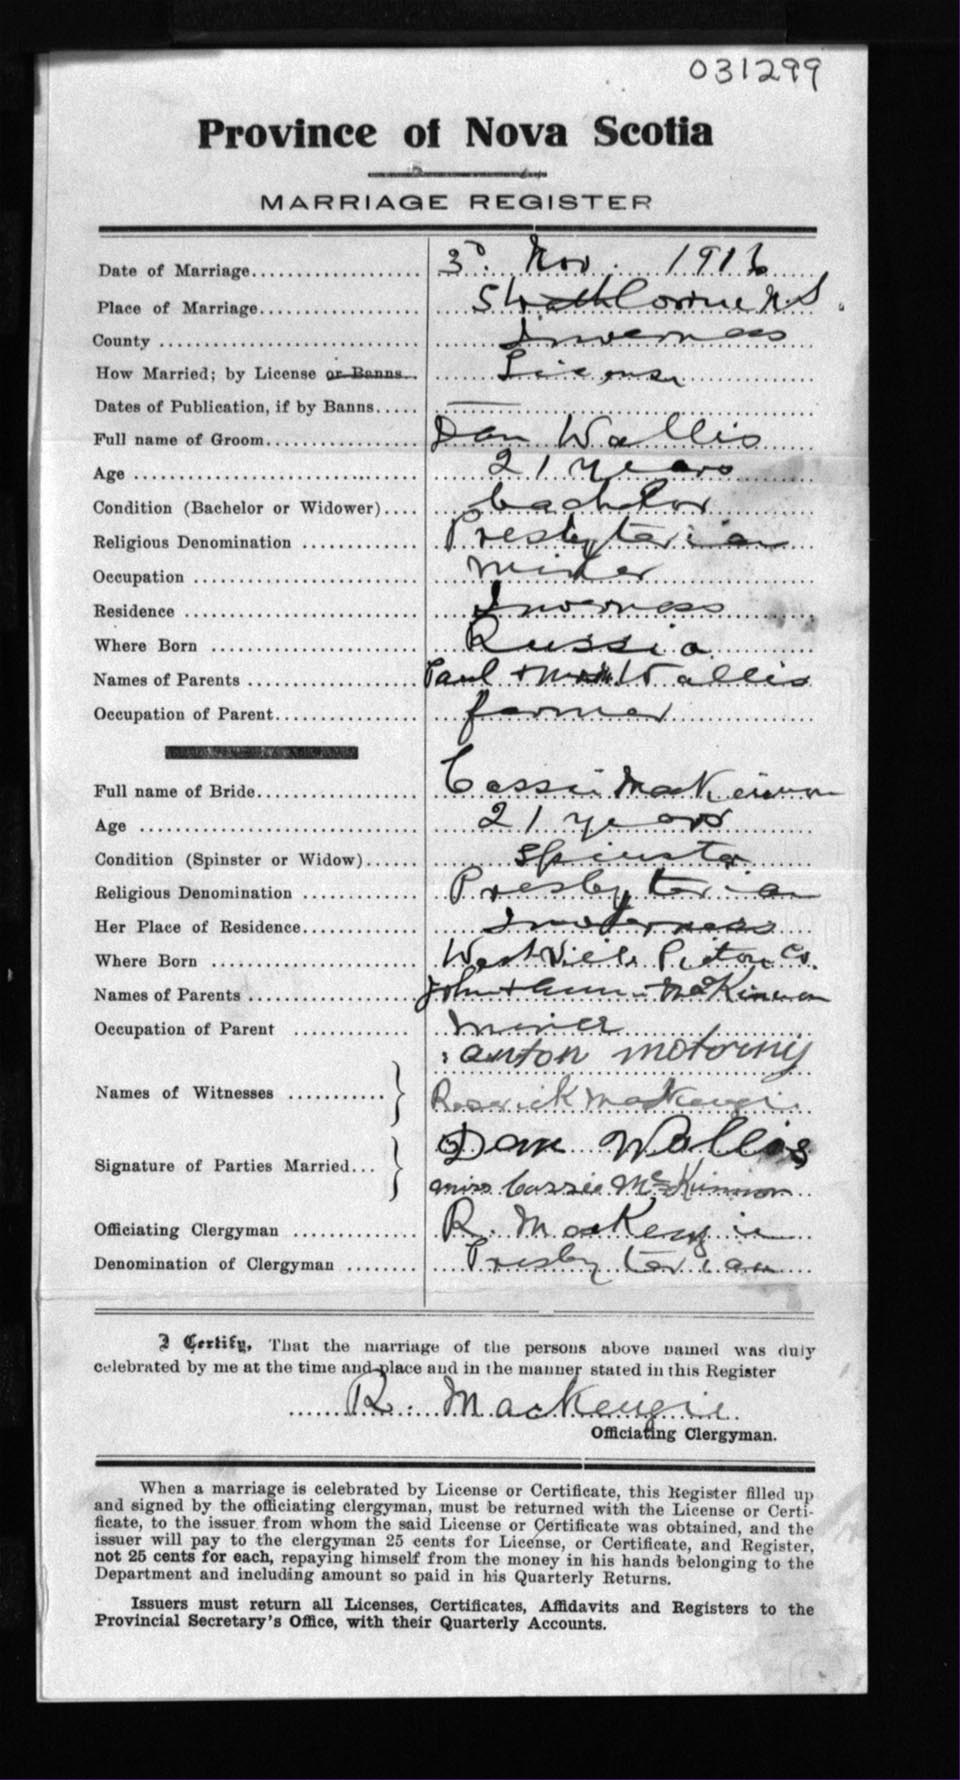 031299
Province of Nova Scotia
MARRIAGE REGISTER
Date of Marriage.................. 3d. Nov. 1916
Place of Marriage.................. Strathlorne N.S.
County .................. Inverness
How Married; by License or Banns... License
Dates of Publication, if by Banns..... ——
Full name of Groom.................. Dan Wallis
Age .................. 21 years
Condition (Bachelor or Widower).... bachelor
Religious Denomination .................. Presbyterian
Occupation .................. miner
Residence .................. Inverness
Where Born .................. Russia
Names of Parents .................. Paul + Wallis
Occupation of Parent.................. farmer
Full name of Bride.................. Cassie MacKinnon
Age .................. 21 years
Condition (Spinster or Widow)...... spinster
Religious Denomination .................. Presbyterian
Her Place of Residence.................. Inverness
Where Born .................. Westville Pictou Co.
Names of Parents .................. John + MacKinnon
Occupation of Parent .................. miner
anton
Names of Witnesses ............ } Roderick MacKenzie
Dan Wallis
Signature of Parties Married... }
miss Cassie McKinnon
Officiating Clergyman .................. R. MacKenzie
Denomination of Clergyman ........ Presbyterian
I Certify, That the marriage of the persons above named was duly
celebrated by me at the time and place and in the manner stated in this Register
R. MacKenzie
Officiating Clergyman.
When a marriage is celebrated by License or Certificate, this Register filled up
and signed by the officiating clergyman, must be returned with the License or Certi-
ficate, to the issuer from whom the said License or Certificate was obtained, and the
issuer will pay to the clergyman 25 cents for License, or Certificate, and Register,
not 25 cents for each, repaying himself from the money in his hands belonging to the
Department and including amount so paid in his Quarterly Returns.
Issuers must return all Licenses, Certificates, Affidavits and Registers to the
Provincial Secretary's Office, with their Quarterly Accounts.